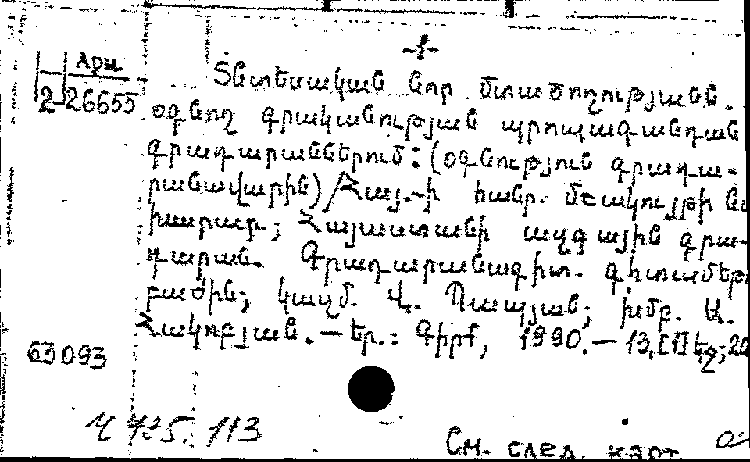 -1-
Арм.
2-26655
Տնտեսական նոր մտածողությանն
օգնող գրականության պրոպագանդան
գրադարաններում: (օգնություն գրադա-
րանավարին) / Հայ.-ի հանր. մշակույթի նա
խարար.; Հայաստանի ազգային գրա-
դարան. Գրադարանագիտ. գիտամեթ
բաժին; կազմ. Վ. Պապյան; խմբ. Ա.
Հակոբյան. — Եր.: Գիրք, 1990. — 13,[1] էջ; 20
63093
4 125. 113
См. след. карт